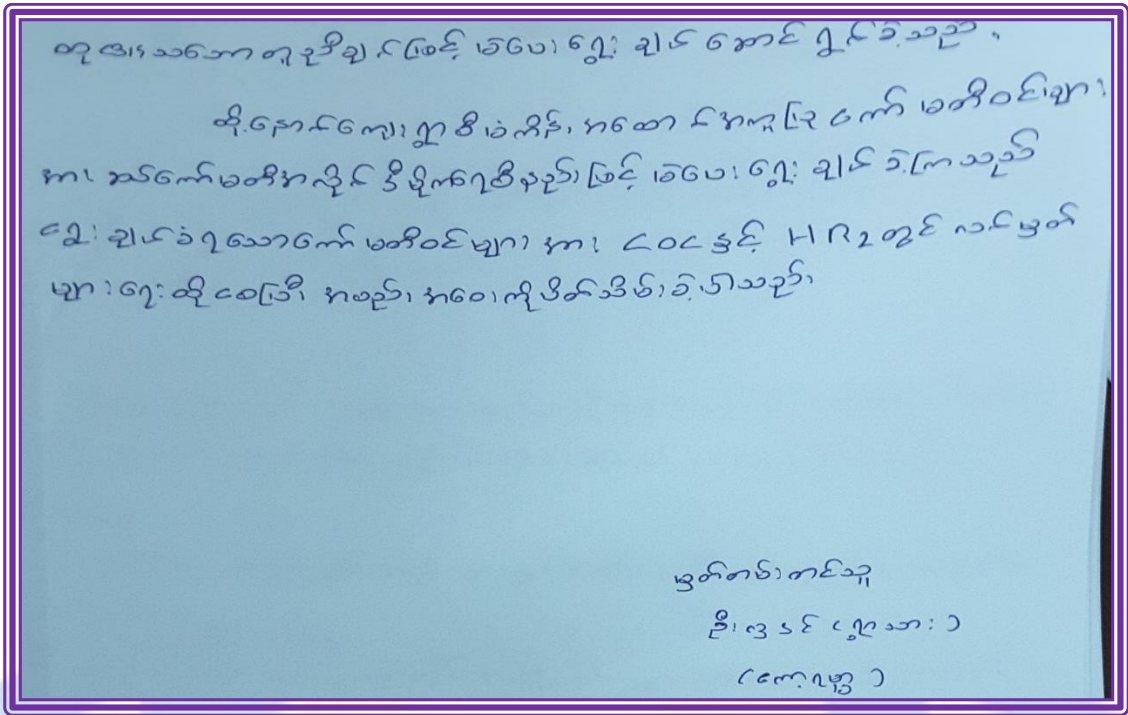 လူများသဘောတူညီချက်ဖြင့် မဲပေးရွေးချယ်ဆောင်ရွက်ခဲ့သည်။
ထို့နောက်ကျေးရွာစီမံကိန်း အထောက်အကူပြုကော်မတီဝင်များ
အား ဆပ်ကော်မတီအလိုက် ဒီမိုကရေစီနည်းဖြင့် မဲပေးရွေးချယ်ခဲ့ကြသည်
ရွေးချယ်ခံရသောကော်မတီဝင်များအား COC နှင့် HR 2 တွင် လက်မှတ်
များရေးထိုးစေပြီး အစည်းအဝေးကိုပိတ်သိမ်းခဲ့ပါသည်။
မှတ်တမ်းတင်သူ
ဦး (ရွာသား)
(ကော့ဗဟ္မာ)